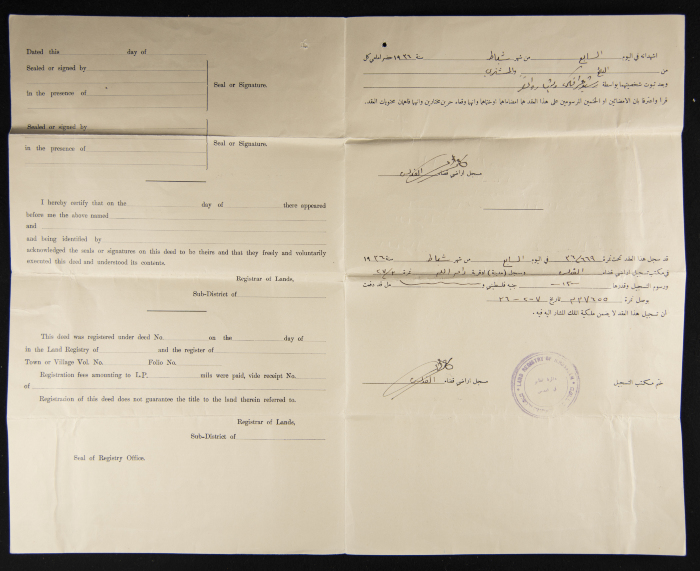 Dated this day of
Sealed or signed by
Seal or Signature.
In the presence of
Sealed or signed by
Seal or Signature.
in the presence of
I hereby certify that on the day of there appeared
before me the above named
and
and being identified by
acknowledged the seals or signatures on this deed to be theirs and that they freely and voluntarily
executed this deed and understood its contents.
Registrar of Lands,
Sub-District of
This deed was registered under deed No. on the day of
in the Land Registry of and the register of
Town or Village Vol. No. Folio No.
Registration fees amounting to L.P. mils were paid, vide receipt No.
of
Registration of this deed does not guarantee the title to the land therein referred to.
Registrar of Lands,
Sub-District of
Seal of Registry Office.
اشهد انه في اليوم السابع من شهر شباط سنة ١٩٣٦ حضر امامي كل
من البائع والمشتري
وبعد ثبوت شخصيتهما بواسطة
قرا واعترفا بان الامضائين او الختمين المرسومين على هذا العقد هما امضاءاهما او ختماهما وانهما وقعاه حرين مختارين وانهما فاهمان محتويات العقد.
مسجل اراضي قضاء القدس
قد سجل هذا العقد تحت نمرة ٣٦/٩٦٩ في اليوم السابع من شهر شباط سنة ١٩٣٦
في مكتب تسجيل اراضي قضاء القدس وسجل (مدينة) او قرية نمرة
ورسوم التسجيل وقدرها جنيه فلسطيني و مل قد دفعت
بوصل نمرة ٣٣٧٦٥٥ تاريخ ٧-٢-٣٦
ان تسجيل هذا العقد لا يضمن ملكية الملك المشار اليه فيه.
ختم مكتب التسجيل
LAND REGISTRY OF
مسجل اراضي قضاء القدس